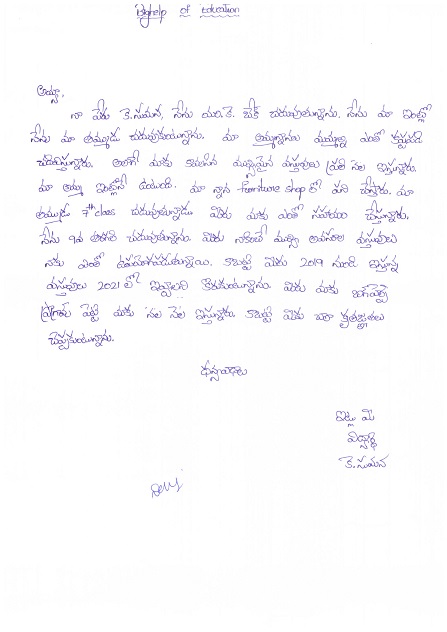 Bighelp of Education
అయ్యా,
నా పేరు కె.సుమన, నేను యం.కె. బేక్ చదువుతున్నాను. నేను మా ఇంట్లో
నేను మా తమ్ముడు చదువుకుంటున్నాను. మా అమ్మానాన్నలు మమ్మల్ని ఎంతో కష్టపడి
చదివిస్తున్నారు. అలాగే మాకు కావలసిన ముఖ్యమైన వస్తువులు ప్రతి నెల ఇస్తున్నారు.
మా అమ్మ ఇంట్లోనే ఉంటుంది. మా నాన్న Furniture shop లో పని చేస్తారు. మా
తమ్ముడు 7th class చదువుతున్నాడు మీరు మాకు ఎంతో సహాయం చేస్తున్నారు.
నేను 9వ తరగతి చదువుతున్నాను. మీరు నాకిచ్చే ముఖ్య అవసరాల వస్తువులు
నాకు ఎంతో ఉపయోగపడుతున్నాయి. కాబట్టి మీరు 2019 నుండి ఇస్తున్న
వస్తువులు 2021 లో ఇవ్వాలని కోరుకుంటున్నాను. మీరు మాకు బిగ్‌హెల్ప్
ప్రోగ్రామ్ పెట్టి మాకు నెల నెల ఇస్తున్నారు. కాబట్టి మీకు చాలా కృతజ్ఞతలు
చెప్పుకుంటున్నాను.
ధన్యవాదాలు
ఇట్లు మీ
విద్యార్థి
కె.సుమన